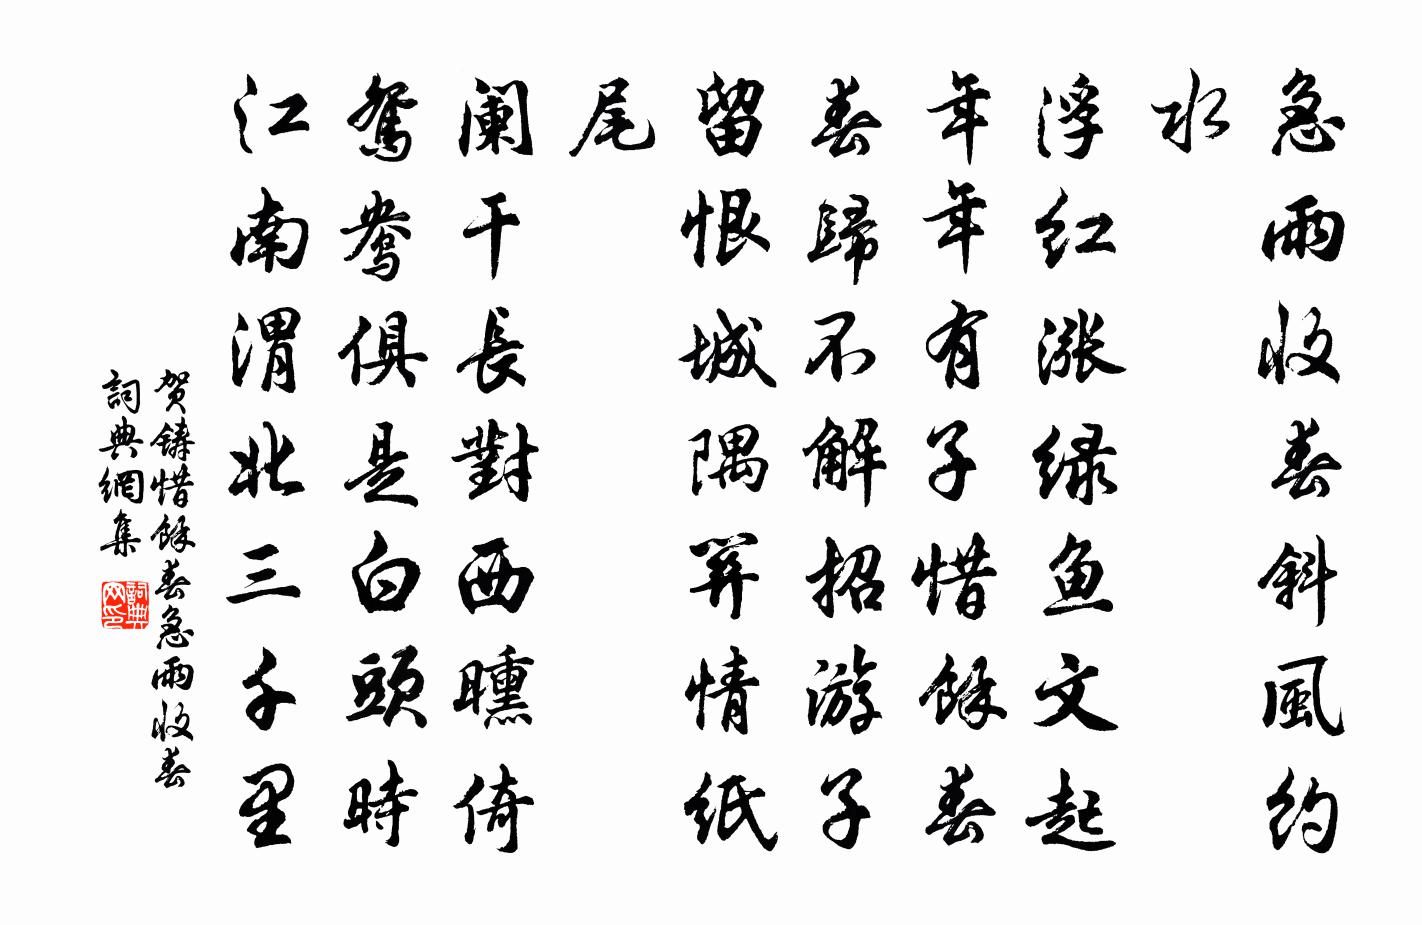 急雨收春斜風約
水
浮红涨绿鱼文起
年年有子惜餘春
春歸不解招游子
留恨城隅關情纸
尾
阑干長對西曛倚
鴛鴦俱是白頭時
江南渭北三千里
贺鑄惜餘春急雨收春
詞典網集
詞典网印